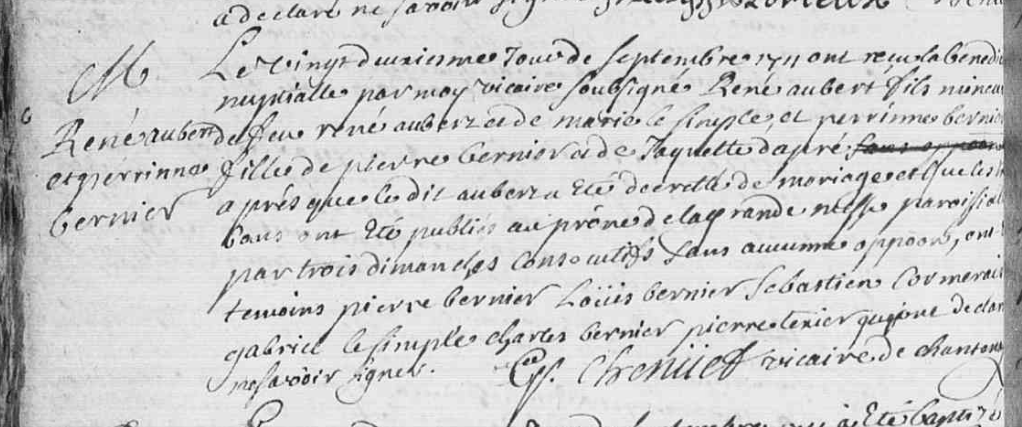 a declaré ne savoir signer
M
René aubert
et perrinne
bernier
Le vingt deuxiesme Jour de Septembre 1711 ont receu la benedi
nuptialle par moy vicaire soubsigné René aubert fils mineur
de feu rené aubert et de marie le simple, et perrinne bernier
fille de pierre bernier et de Jaquette dapré
aprés que le dit aubert a Eté decretté de mariage et que les
bans ont Eté publiés au prône de la grande messe paroissial
par trois dimanches consecutifs sans aucunne oppoon, ont
temoins pierre bernier Loüis bernier Sebastien Cormerais
gabriel le simple charles bernier pierre qui ont declar
ne savoir signer. vicaire de chanten
à Eté baptizé